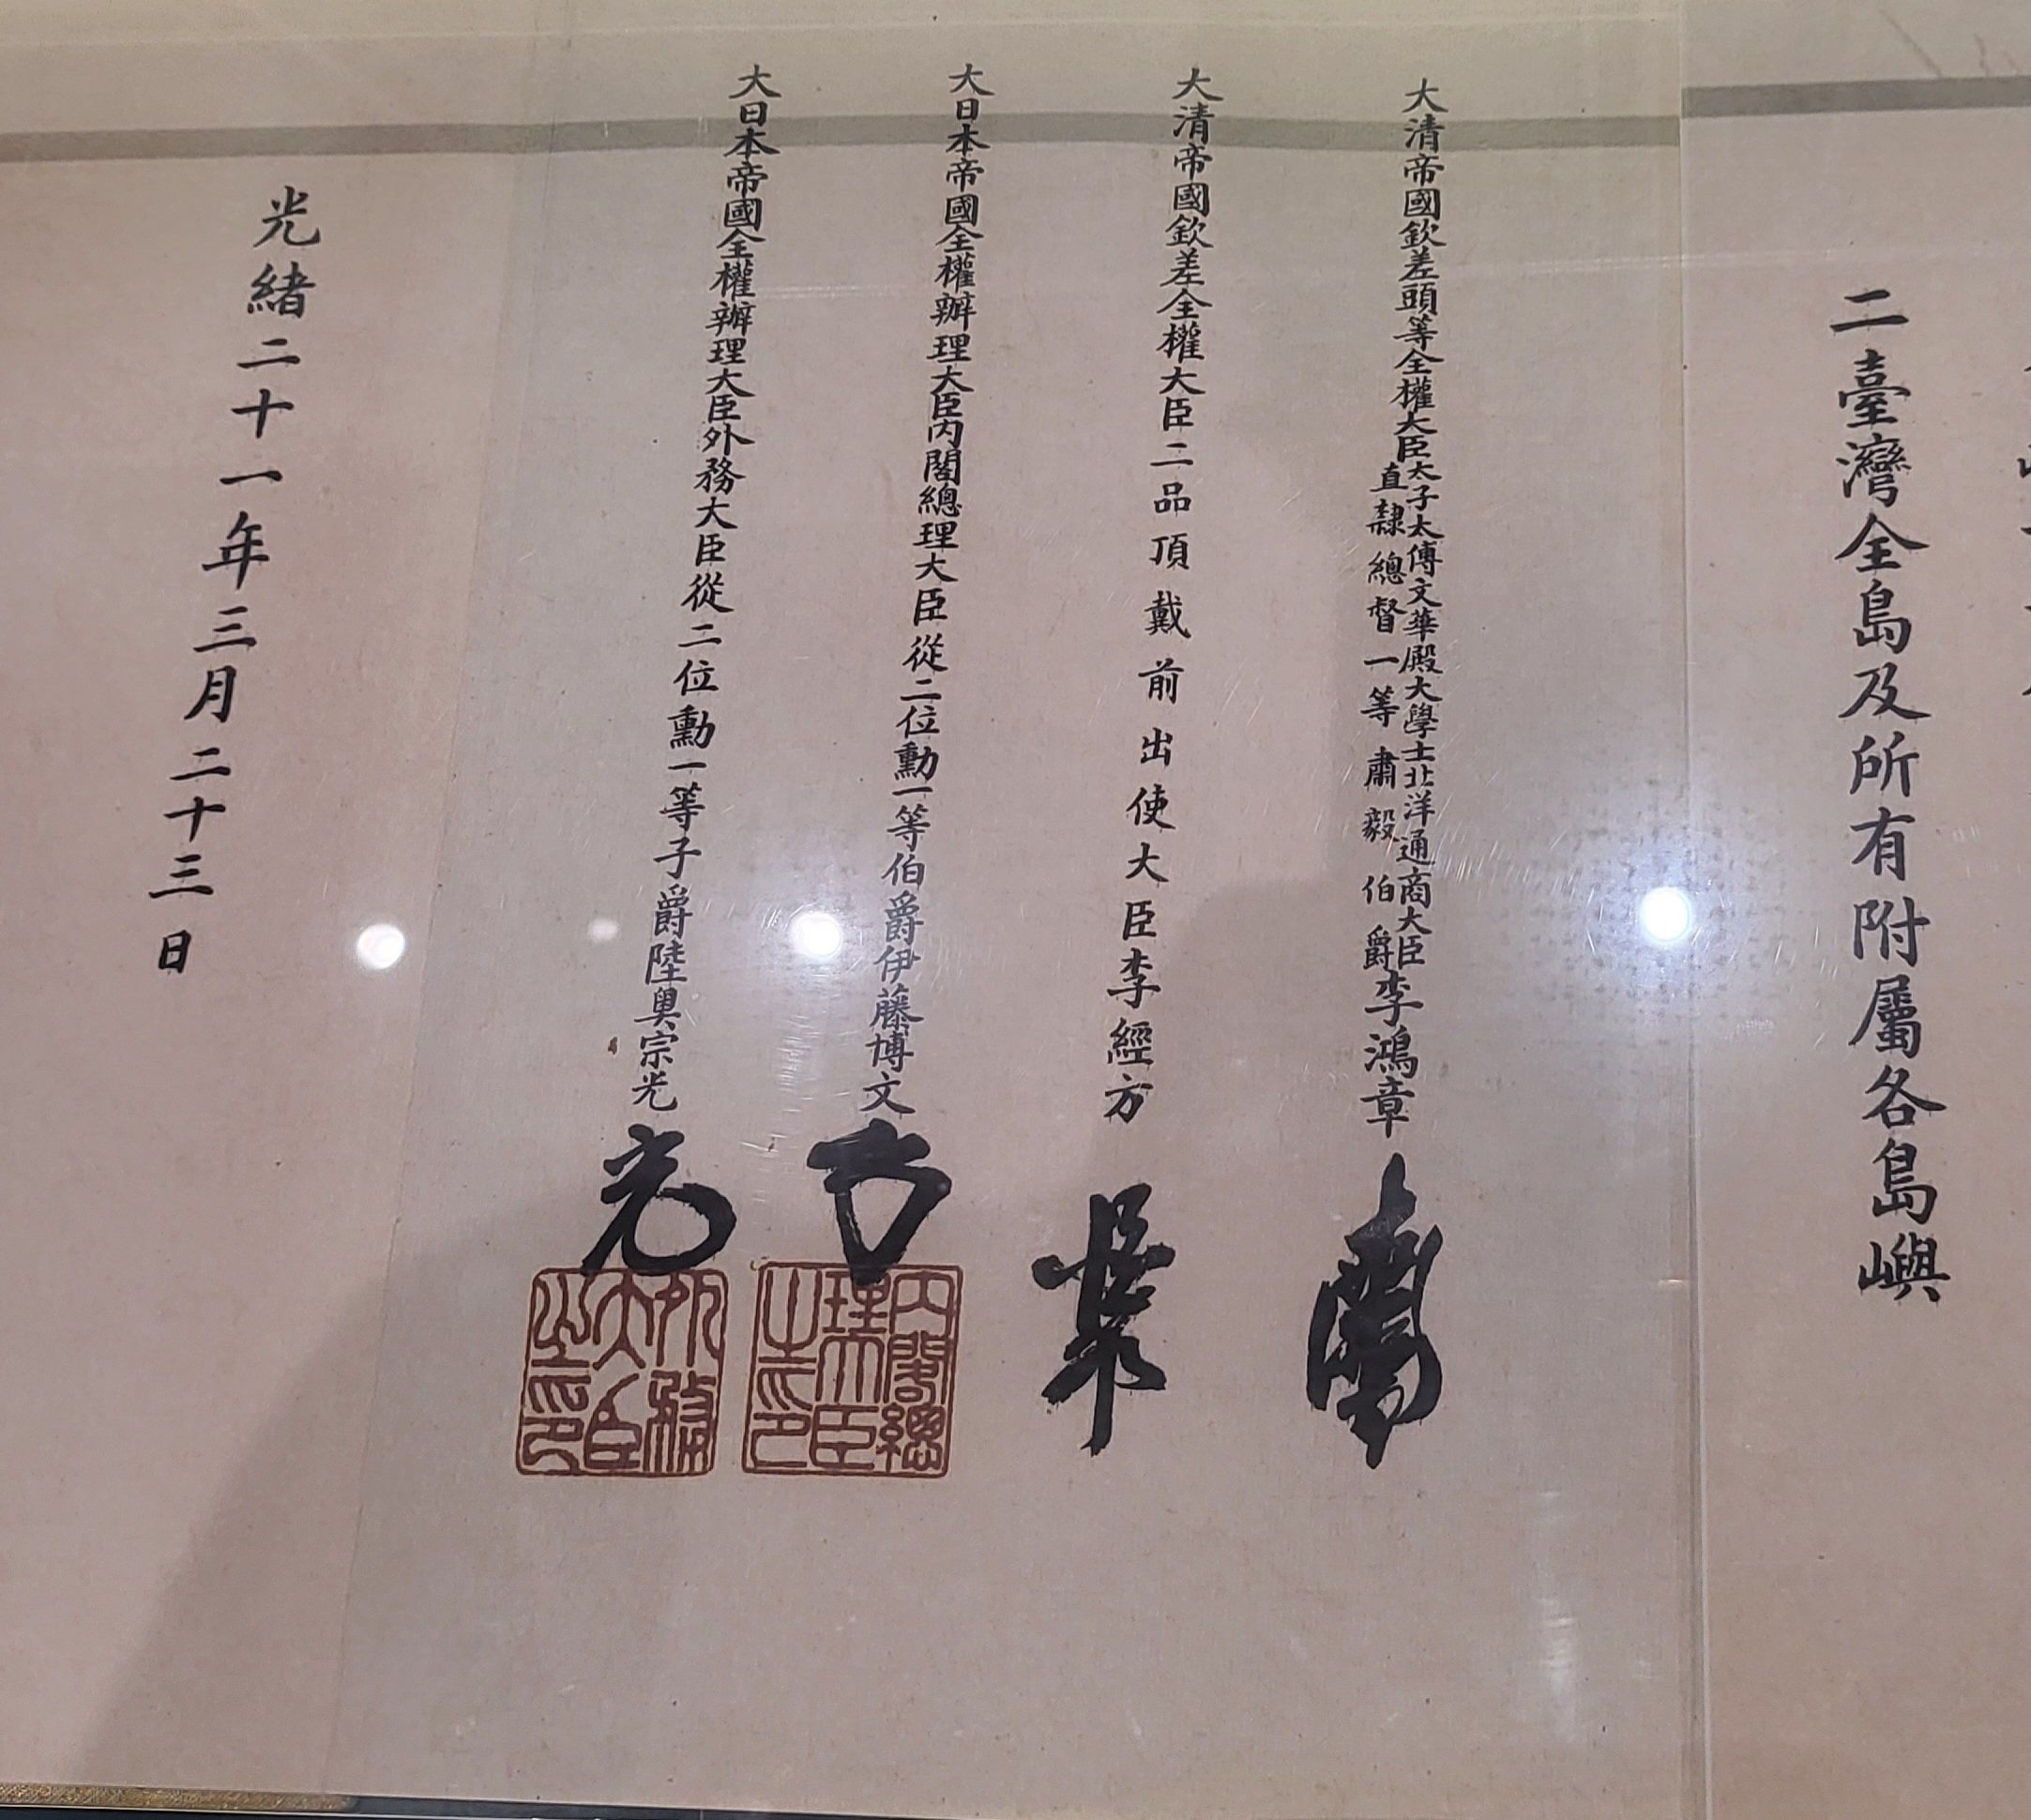 二臺灣全島及所有附屬各島嶼
大清帝國欽差頭等全權大臣太子太傅文華殿大學士北洋通商大臣
直隸總督一等肅毅伯爵李鴻章
大清帝國欽差全權大臣二品頂戴前出使大臣李經方
大日本帝國全權辦理大臣內閣總理大臣從二位勳一等伯爵伊藤博文
內閣總
理大臣
之印
大日本帝國全權辦理大臣外務大臣從二位勳一等子爵陸奧宗光
外務
大臣
之印
光緒二十一年三月二十三日